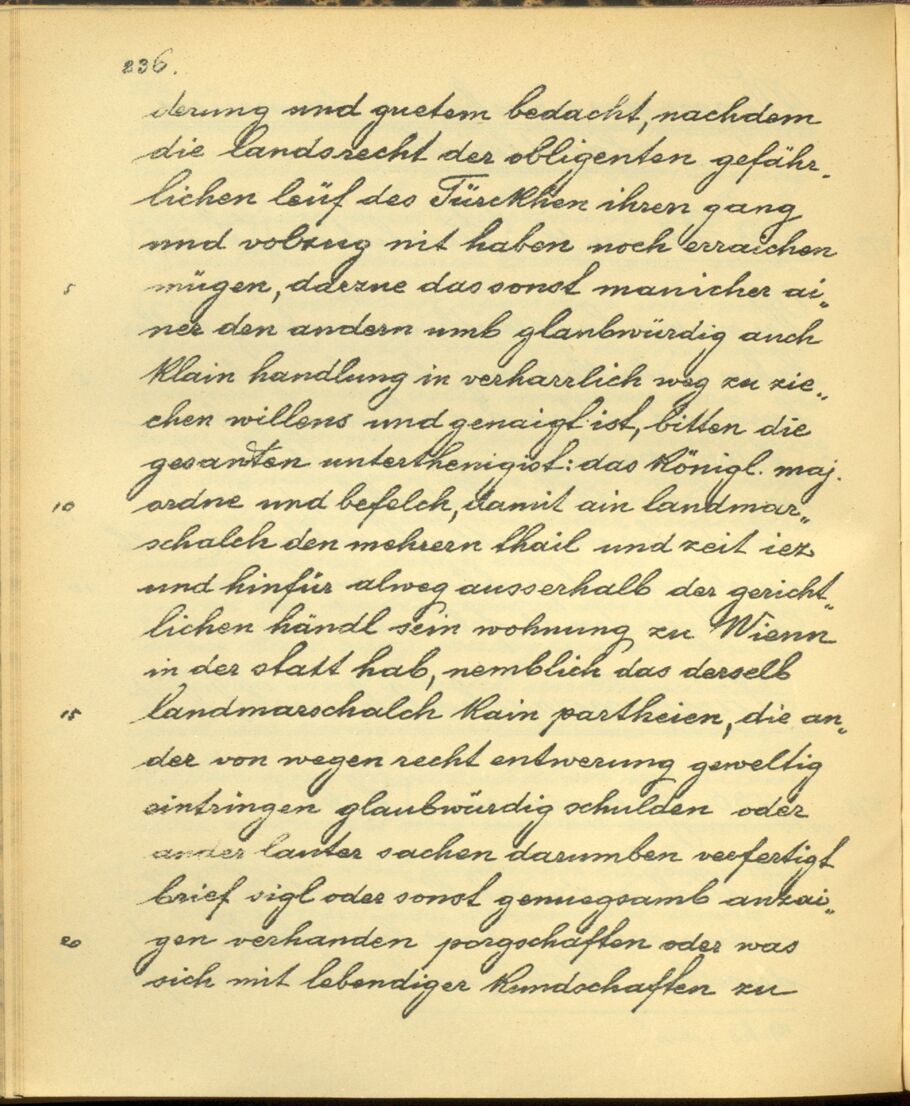 236.
derung und guetem bedacht, nachdem
die landsrecht der obligenten gefähr„
lichen leüf des Türckhen ihren gang
und volzug nit haben noch erraichen
5 mügen, darzue das sonst manicher ai„
ner den andern umb glaubwürdig auch
klain handlung in verharrlich weg zu zie„
chen willens und genaigt ist, bitten die
gesandten unterthenigist: das königl. maj.
10 ordne und befelch, damit ain landmar„
schalch den mehrern thail und zeit iez
und hinfür alweg ausserhalb der gericht„
lichen händl sein wohnung zu Wienn
in der statt hab, nemblich das derselb
15 landmarschalch kain partheien, die an„
der von wegen recht entwerung geweltig
eintringen glaubwürdig schulden oder
ander lauter sachen darumben verfertigt
brief sigl oder sonst genuegsamb anzai„
20 gen verhanden porgschaften oder was
sich mit lebendiger kundschaften zu